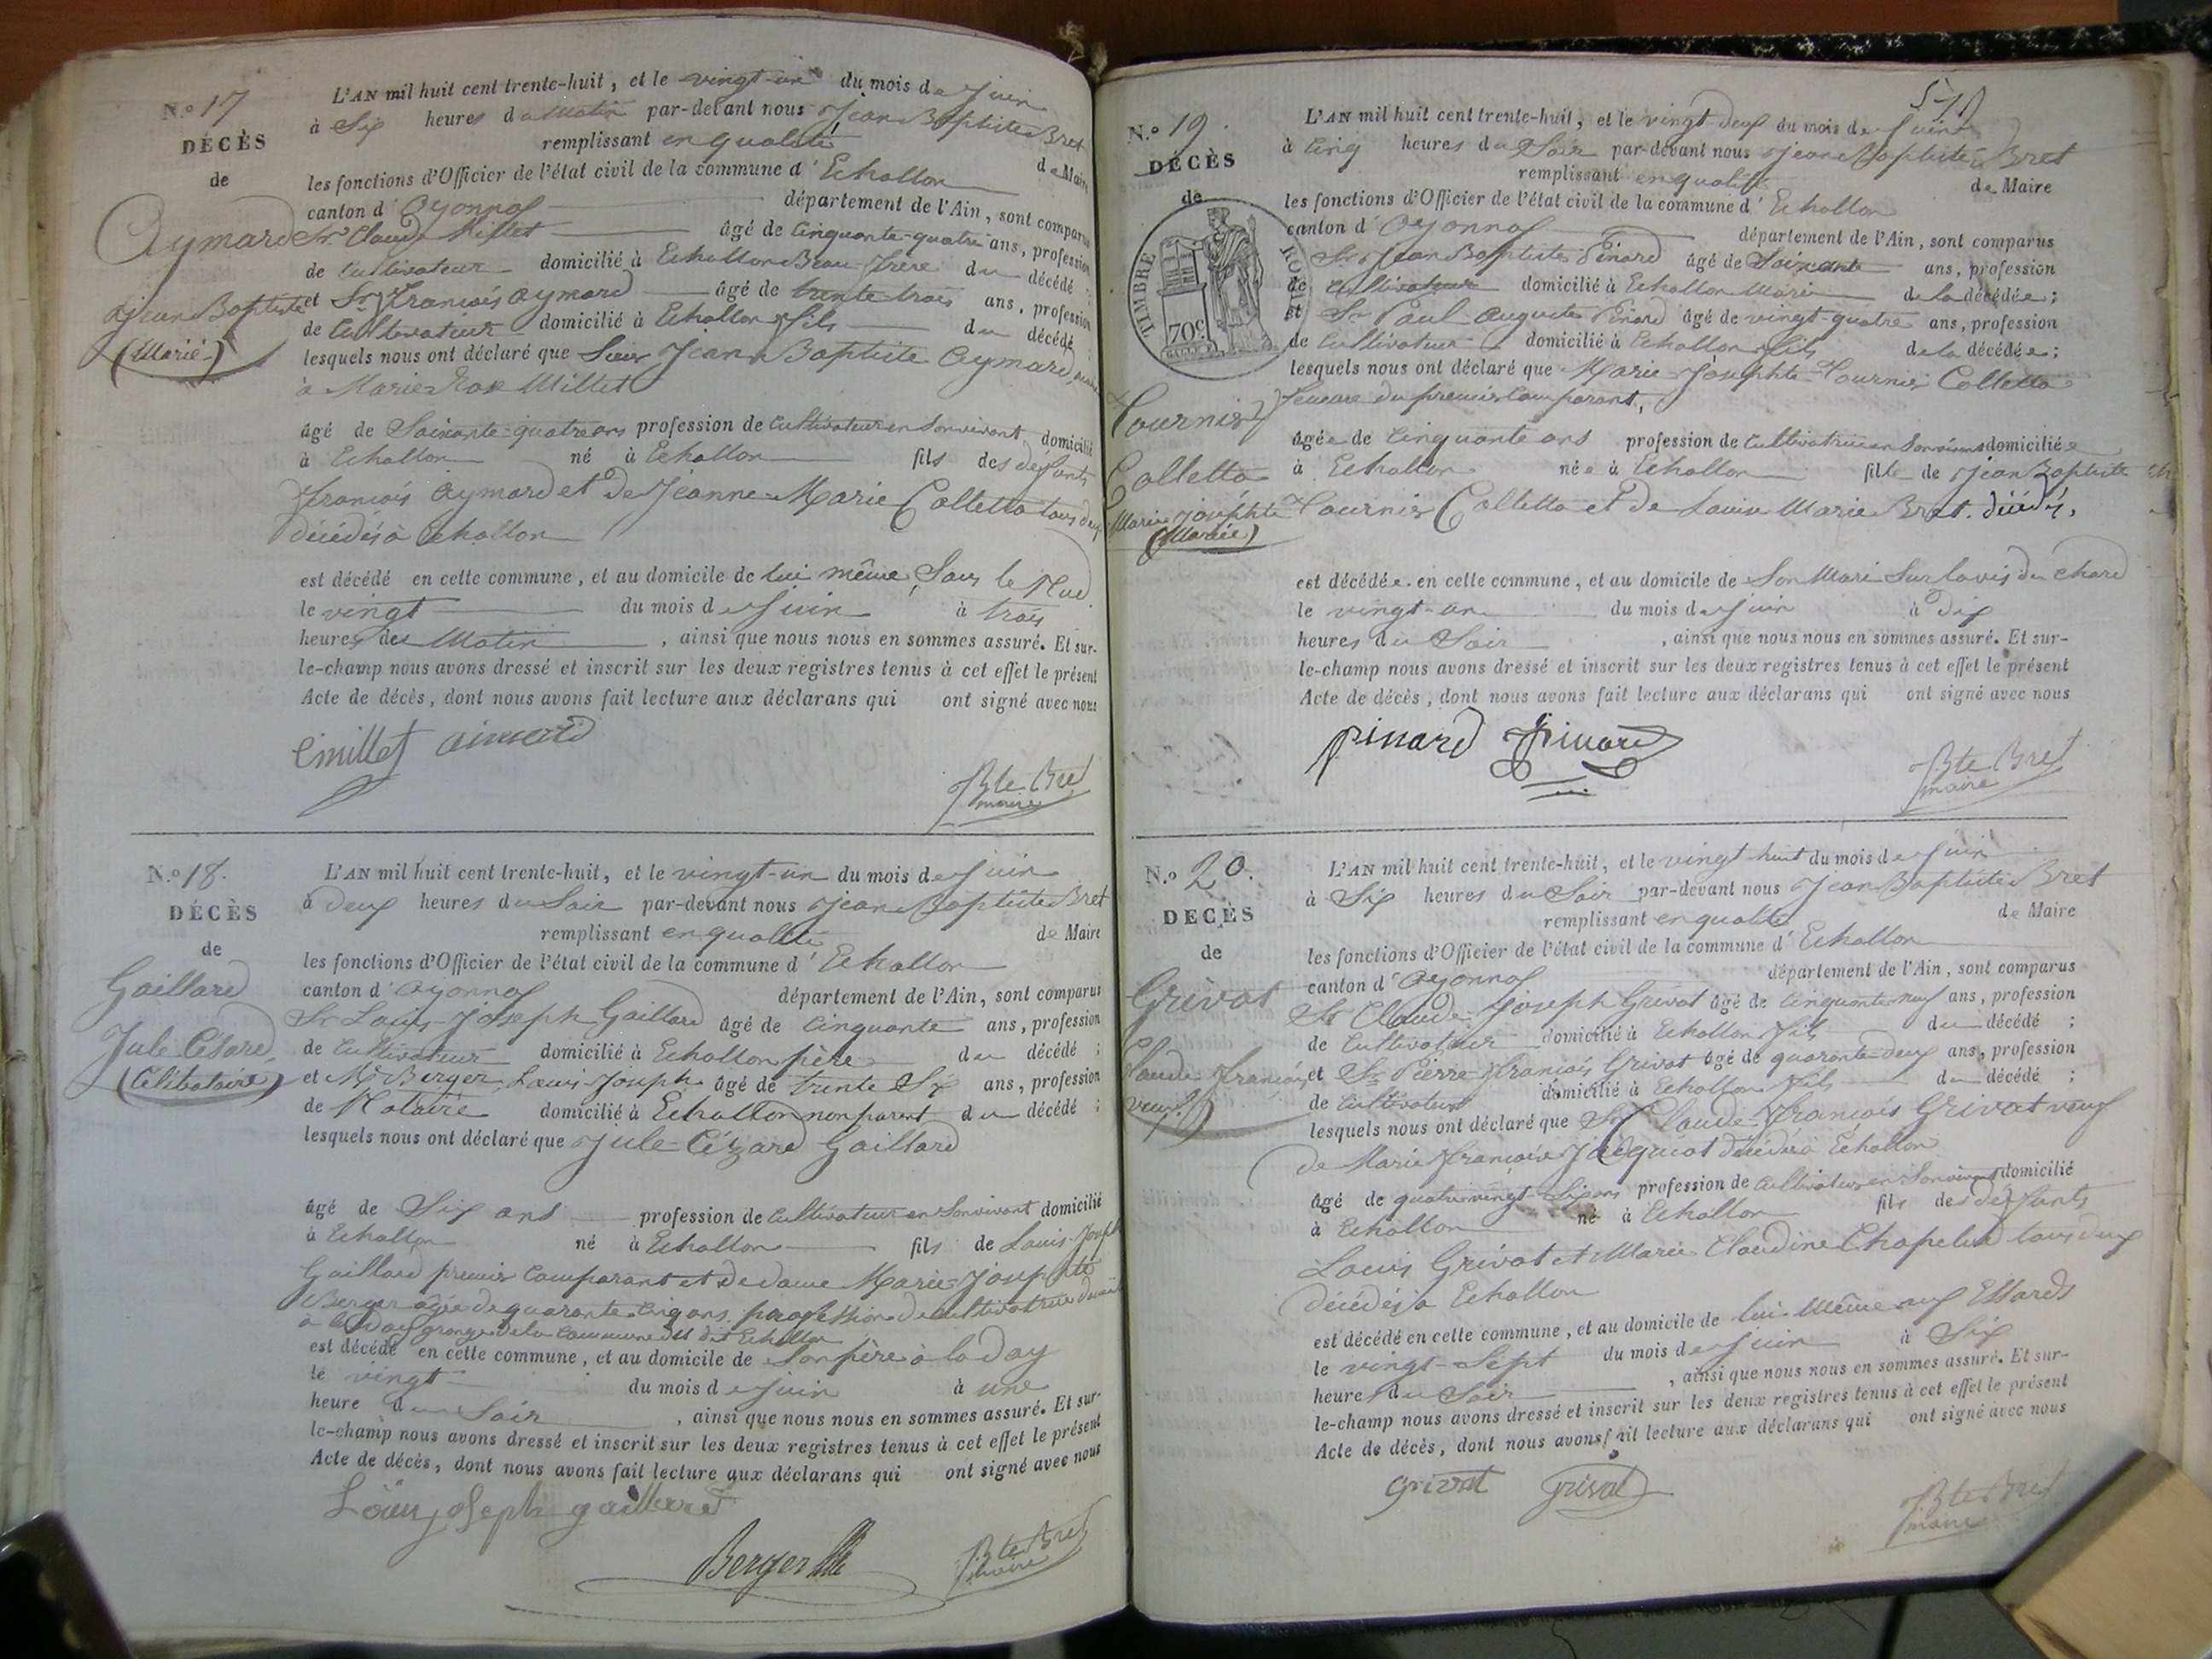 N.° 17
DÉCÈS
de
Aymard
Jean Baptiste
(Marié)
L'AN mil huit cent trente-huit, et le vingt-un du mois de Juin
à Six heures du Matin par-devant nous Jean Baptiste Bret
remplissant en qualité de Maire
les fonctions d'Officier de l'état civil de la commune d'Echallon
canton d'Oyonnax département de l'Ain, sont comparus
Sr Claude Millet âgé de Cinquante-quatre ans, profession
de Cultivateur domicilié à Echallon Beau-frère du décédé ;
et Sr François Aymard âgé de trente trois ans, profession
de Cultivateur domicilié à Echallon fils du décédé ;
lesquels nous ont déclaré que Sieur Jean Baptiste Aymard
à Marie Rose Millet
âgé de Soixante-quatre ans profession de Cultivateur en Son vivant domicilié
à Echallon né à Echallon fils des défunts
François Aymard et de Jeanne-Marie Colletta tous deux
décédés à Echallon
est décédé en cette commune, et au domicile de lui même, Sous le
le vingt du mois de Juin à trois
heures du Matin, ainsi que nous nous en sommes assuré. Et sur-
le-champ nous avons dressé et inscrit sur les deux registres tenus à cet effet le présent
Acte de décès, dont nous avons fait lecture aux déclarans qui ont signé avec nous
C millet aimard
JBte Bret
maire
N.° 18.
DÉCÈS
de
Gaillard
Jule César
(Célibataire)
L'AN mil huit cent trente-huit, et le vingt-un du mois de Juin
à deux heures du Soir par-devant nous Jean Baptiste Bret
remplissant en qualité de Maire
les fonctions d'Officier de l'état civil de la commune d'Echallon
canton d'Oyonnax département de l'Ain, sont comparus
Sr Louis Joseph Gaillard âgé de Cinquante ans, profession
de Cultivateur domicilié à Echallon père du décédé ;
et Mr Berger Louis Joseph âgé de trente Six ans, profession
de Notaire domicilié à Echallon non parent du décédé ;
lesquels nous ont déclaré que Jule-Cézard Gaillard
âgé de Six ans profession de Cultivateur en Son vivant domicilié
à Echallon né à Echallon fils de Louis-Joseph
Gaillard premier Comparant et de dame Marie-Josephte
Berger agée de quarante Cinq ans, profession de cultivatrice
à grange de la Commune du dit Echallon
est décédé en cette commune, et au domicile de Son père à laday
le vingt du mois de Juin à une
heure du Soir, ainsi que nous nous en sommes assuré. Et sur-
le-champ nous avons dressé et inscrit sur les deux registres tenus à cet effet le présent
Acte de décès, dont nous avons fait lecture aux déclarans qui ont signé avec nous
Louis joseph gaillard
Berger
JBte Bret
maire
N.° 19.
DÉCÈS
de
TIMBRE ROYAL
70c
Tournier
Colletta
Marie Josephte
(Mariée)
L'AN mil huit cent trente-huit, et le vingt-deux du mois de Juin
à Cinq heures du Soir par-devant nous Jean Baptiste Bret
remplissant en qualité de Maire
les fonctions d'Officier de l'état civil de la commune d'Echallon
canton d'Oyonnax département de l'Ain, sont comparus
Sr Jean Baptiste Pinard âgé de Soixante ans, profession
de Cultivateur domicilié à Echallon Mari de la décédée ;
et Sr Paul Auguste Pinard âgé de vingt-quatre ans, profession
de Cultivateur domicilié à Echallon fils de la décédée ;
lesquels nous ont déclaré que Marie-Josephte Tournier Colletta
femme du premier Comparant,
âgée de Cinquante ans profession de Cultivatrice en Son vivant domiciliée
à Echallon née à Echallon fille de Jean Baptiste
Tournier Colletta et de Louise Marie Bret. décédés.
est décédée en cette commune, et au domicile de Son Mari
le vingt-un du mois de Juin à dix
heures du Soir, ainsi que nous nous en sommes assuré. Et sur-
le-champ nous avons dressé et inscrit sur les deux registres tenus à cet effet le présent
Acte de décès, dont nous avons fait lecture aux déclarans qui ont signé avec nous
pinard Pinard
JBte Bret
maire
N.° 20.
DÉCÈS
de
Grivat
Claude François
veuf
L'AN mil huit cent trente-huit, et le vingt-huit du mois de Juin
à Six heures du Soir par-devant nous Jean Baptiste Bret
remplissant en qualité de Maire
les fonctions d'Officier de l'état civil de la commune d'Echallon
canton d'Oyonnax département de l'Ain, sont comparus
Sr Claude Joseph Grivat âgé de Cinquante neuf ans, profession
de Cultivateur domicilié à Echallon fils du décédé ;
et Sr Pierre-François Grivat âgé de quarante-deux ans, profession
de Cultivateur domicilié à Echallon fils du décédé ;
lesquels nous ont déclaré que Sr Claude-François Grivat veuf
de Marie Françoise Jacquiot décédée à Echallon
âgé de quatre-vingt-Six ans profession de Cultivateur en Son vivant domicilié
à Echallon né à Echallon fils des défunts
Louis Grivat et Marie Claudine Chapelu tous deux
décédés à Echallon
est décédé en cette commune, et au domicile de lui-Même aux Essards
le vingt-Sept du mois de Juin à Six
heures du Soir, ainsi que nous nous en sommes assuré. Et sur-
le-champ nous avons dressé et inscrit sur les deux registres tenus à cet effet le présent
Acte de décès, dont nous avons fait lecture aux déclarans qui ont signé avec nous
Grivat Grivat
JBte Bret
maire